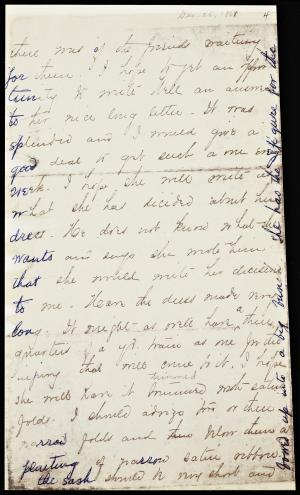 Dec. 25, 1868
4
there was of the friends waiting
for them. I hope to get an oppor
tunity to write Nell an answer
to her nice long letter. It was
splendid and I would give a
good deal to get such a one every
week. I hope she will write
what she has decided about her
dress. He does not know what she
wants and says she wrote him
that she would write her decision
to me. Have the dress made very
long. It ought as well have a three
quarters of a yd. train as one
that will cover it. I hope
she will have it trimmed with satin
folds. I should advise two or three
narrow folds and then below them a
plaiting of narrow satin ribbon.
the sash should be very short and
looped up into a big